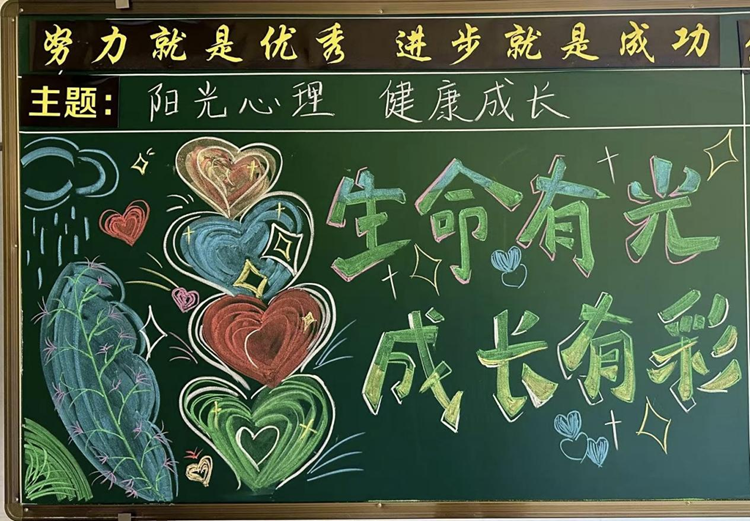 努力就是优秀 进步就是成功
主题：阳光心理 健康成长
生命有光
成长有彩